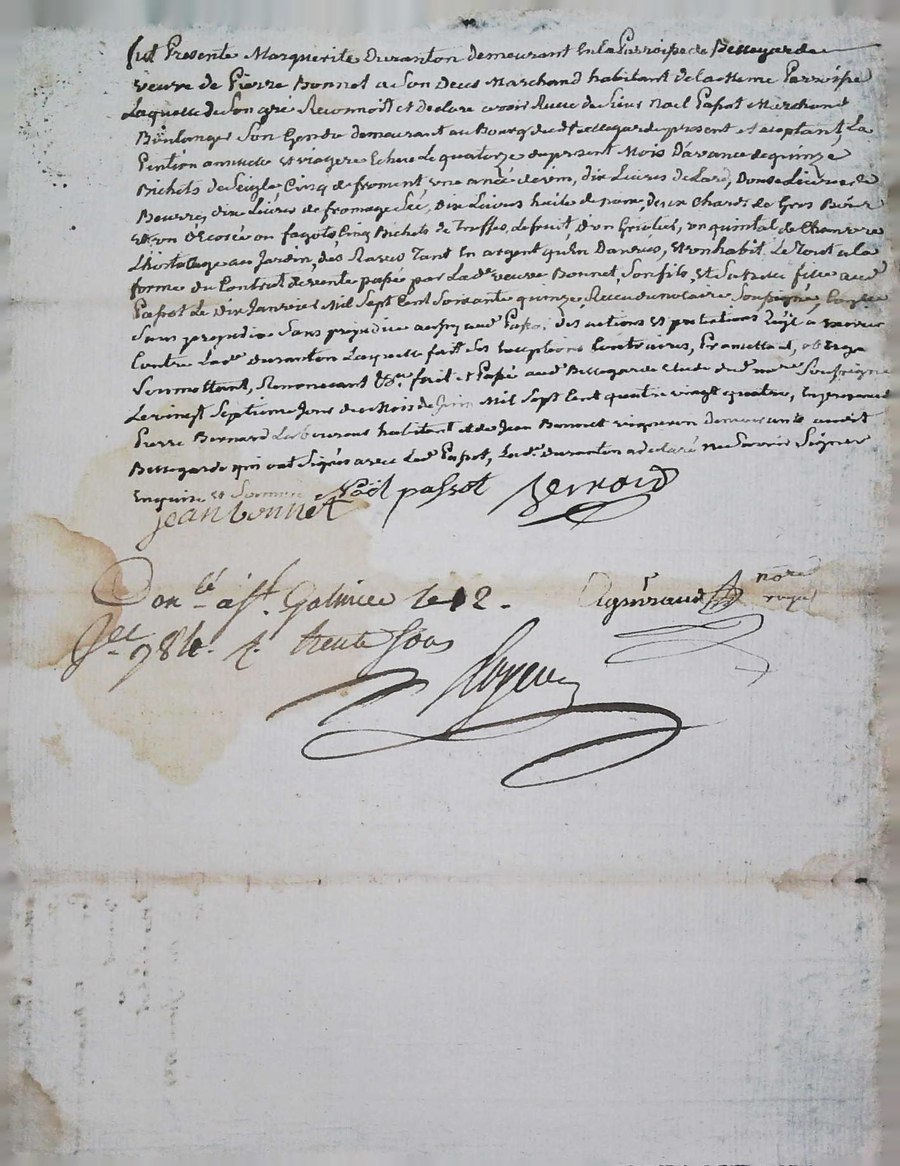 fut Presente Marguerite Duranton demeurant En la Parroisse de Bellegarde
veuve de Pierre Bonnet a Son Deces Marchand habitant de la Meme Parroisse
Laquelle de Son gre Reconnoit et Declare avoir Recue de Sieur Noël Passot Marchand
Boulanger Son Gendre demeurant au Bourg dud. Bellegarde present et acceptant, La
Pention annuelle et viagere Echue Le quatorze du present Mois D'avance de quinze
Bichets de Seigle Cinq de froment, une anée de vin, dix Livres de Lard, Douze Livres de
Beurre, dix Livres de fromage Sec, Dix Livres huile de noix, deux Chards de Gros Bois
et un en fagots, Cinq Bichets de Truffes, Le fruit d'un Griotier, un quintal de Chanvre
L'hortollage au Jardin, des Raves Tant En argent qu'en Danrées, et un habit. Le Tout a la
forme du Contrat de vente passé par Lad.e veuve Bonnet, Son fils, et Sa Belle fille aud.
Passot Le dix Janvier Mil Sept Cent Soixante quinze Reçu du notaire Soussigné,
Sans prejudice Sans prejudice aussy aud. Passot des actions et pretentions qu'il a
Contre Lad.e Duranton Laquelle fait Ses Exceptions Contraires, Promettant, obligeant
Soumettant, Renoncant &a. fait et Passé aud. Bellegarde Etude du d. no.re Soussigné
Le vingt Septieme Jour du Mois de Juin Mil Sept Cent quatre vingt quatre, En presence
Pierre Bernard Laboureur habitant et de Jean Bonnet vigneron Demeurants audit
Bellegarde qui ont Signés avec Led. Passot, Lad.e Duranton a declaré ne Savoir Signer
Enquise et Sommée Noël passot Bernard
jean bonnet
Con.lé a St. Galmier le 12.
Jet 1784. R. trente Sous
nore
royal